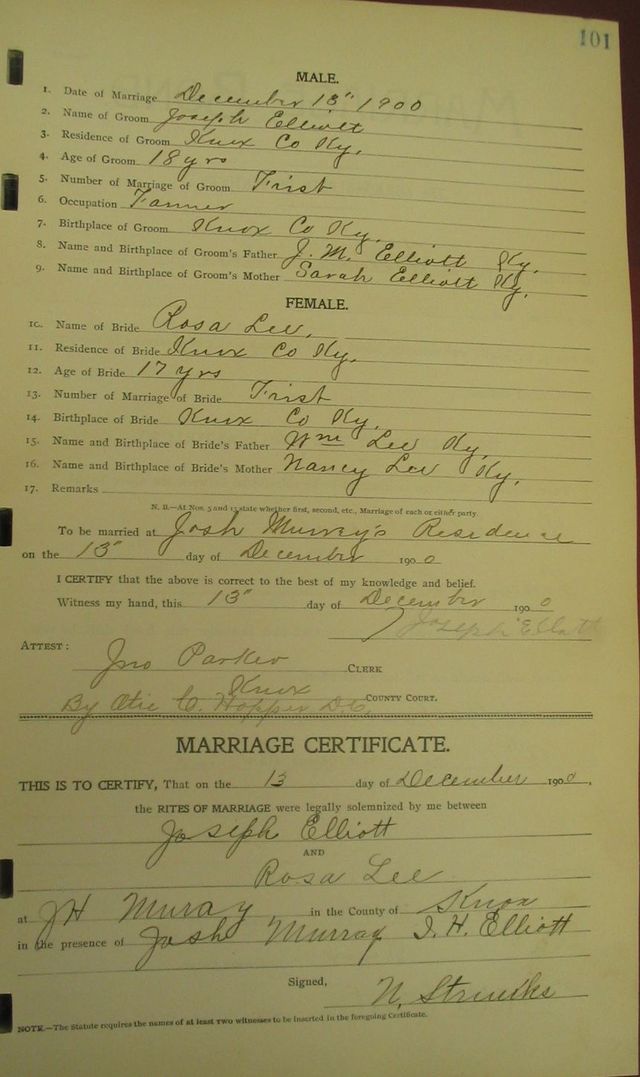 101
MALE.
1. Date of Marriage December 13" 1900
2. Name of Groom Joseph Elliott
3. Residence of Groom Knox Co Ky.
4. Age of Groom 18 yrs
5. Number of Marriage of Groom First
6. Occupation Farmer
7. Birthplace of Groom Knox Co Ky.
8. Name and Birthplace of Groom's Father J. M. Elliott Ky.
9. Name and Birthplace of Groom's Mother Sarah Elliott Ky.
FEMALE.
10. Name of Bride Rosa Lee,
11. Residence of Bride Knox Co Ky.
12. Age of Bride 17 yrs
13. Number of Marriage of Bride First
14. Birthplace of Bride Knox Co Ky.
15. Name and Birthplace of Bride's Father Wm Lee Ky.
16. Name and Birthplace of Bride's Mother Nancy Lee Ky.
17. Remarks
N. B.—At Nos. 5 and 13 state whether first, second, etc., Marriage of each or either party.
To be married at Josh Murray's Residence
on the 13" day of December 1900
I CERTIFY that the above is correct to the best of my knowledge and belief.
Witness my hand, this 13" day of December 1900
Joseph Elliott
ATTEST:
Jno Parker CLERK
Knox COUNTY COURT.
By C. Hopper D.C.
MARRIAGE CERTIFICATE.
THIS IS TO CERTIFY, That on the 13 day of December 1900.
the RITES OF MARRIAGE were legally solemnized by me between
Joseph Elliott
AND
Rosa Lee
at JH Muray in the County of Knox
in the presence of Josh Murray I. H. Elliott
Signed,
N.
NOTE.—The Statute requires the names of at least two witnesses to be inserted in the foregoing Certificate.